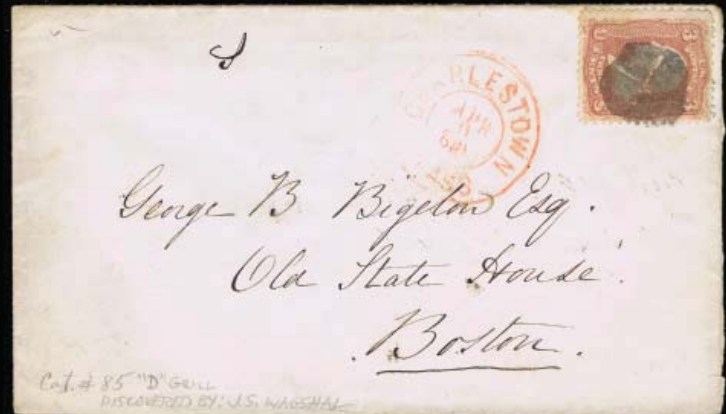 CHARLESTOWN
MASS
George B Bigelow Esq.
Old State House.
Boston.
Cat. # 85 "D" GRILL
DISCOVERED BY: J.S. WAGSHAL